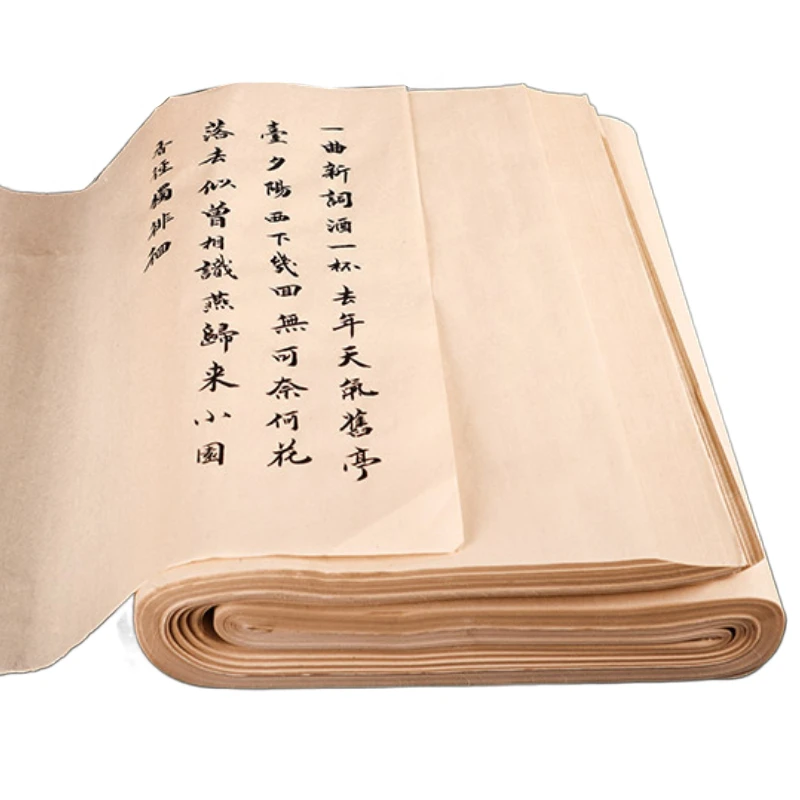 一曲新詞酒一杯去年天氣舊亭
臺夕陽西下幾回無可奈何花
落去似曾相識燕歸来小園
香徑獨徘徊